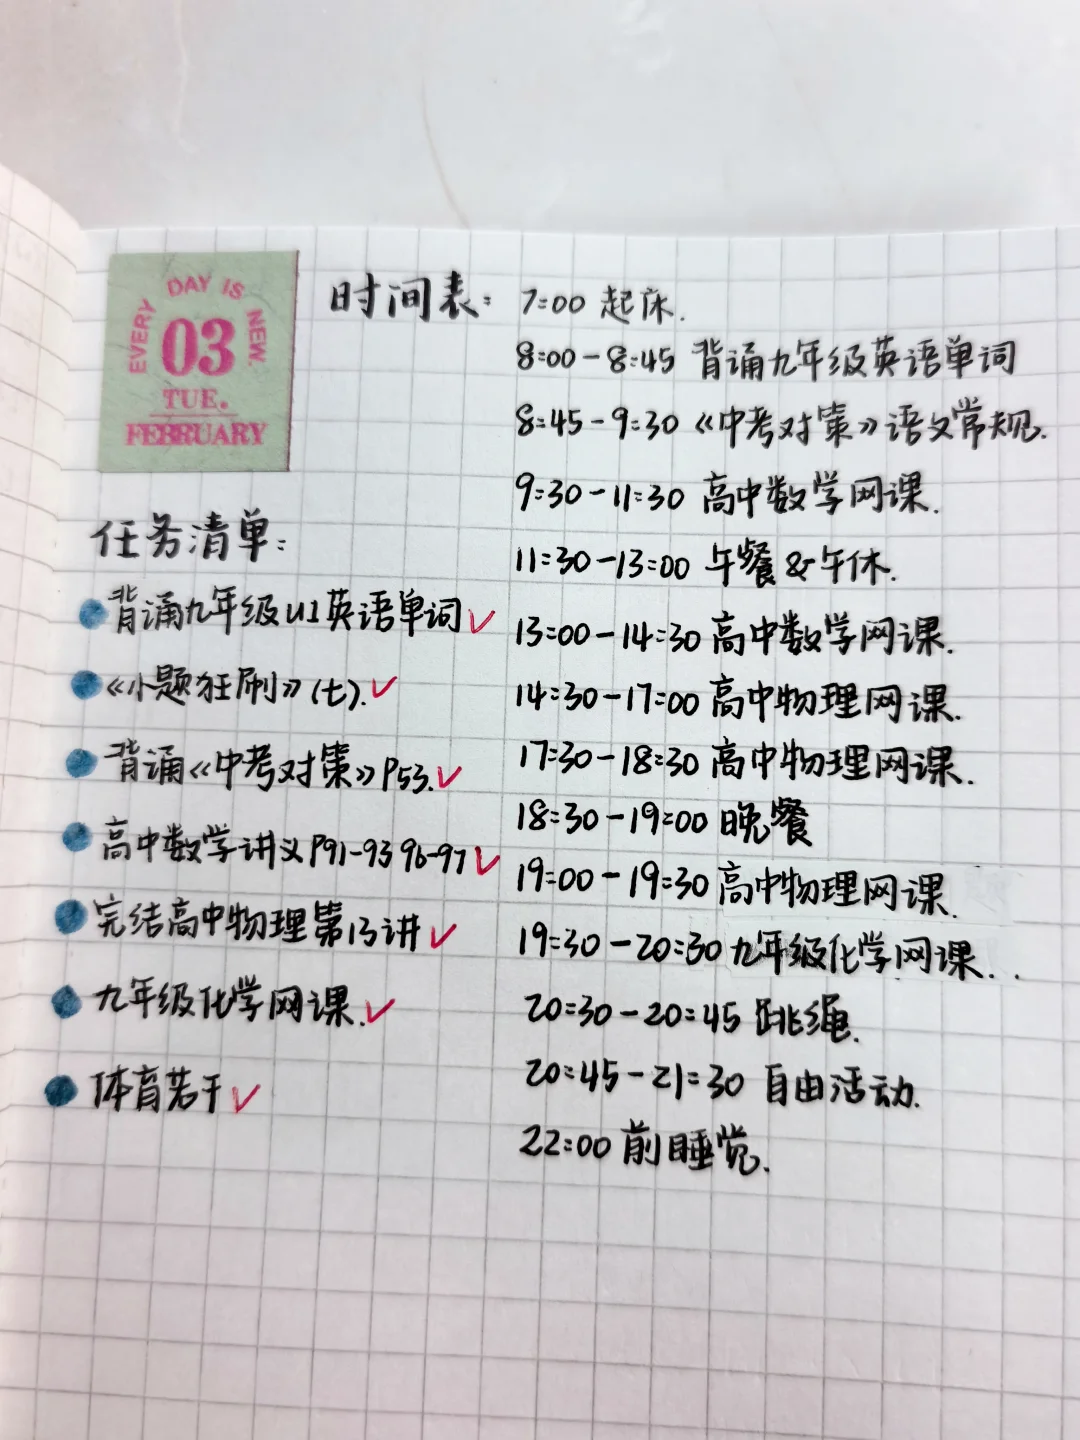 EVERY DAY IS NEW.
03
TUE.
FEBRUARY
时间表:
7:00 起床.
8:00-8:45 背诵九年级英语单词
8:45-9:30 《中考对策》语文常规.
9:30-11:30 高中数学网课.
11:30-13:00 午餐&午休.
13:00-14:30 高中数学网课.
14:30-17:00 高中物理网课.
17:30-18:30 高中物理网课.
18:30-19:00 晚餐
19:00-19:30 高中物理网课.
19:30-20:30 九年级化学网课...
20:30-20:45 跳绳.
20:45-21:30 自由活动.
22:00 前睡觉.
任务清单:
背诵九年级U1英语单词✓
《小题狂刷》(七).✓
背诵《中考对策》P53.✓
高中数学讲义P91-93 96-97✓
完结高中物理第13讲✓
九年级化学网课.✓
体育若干✓